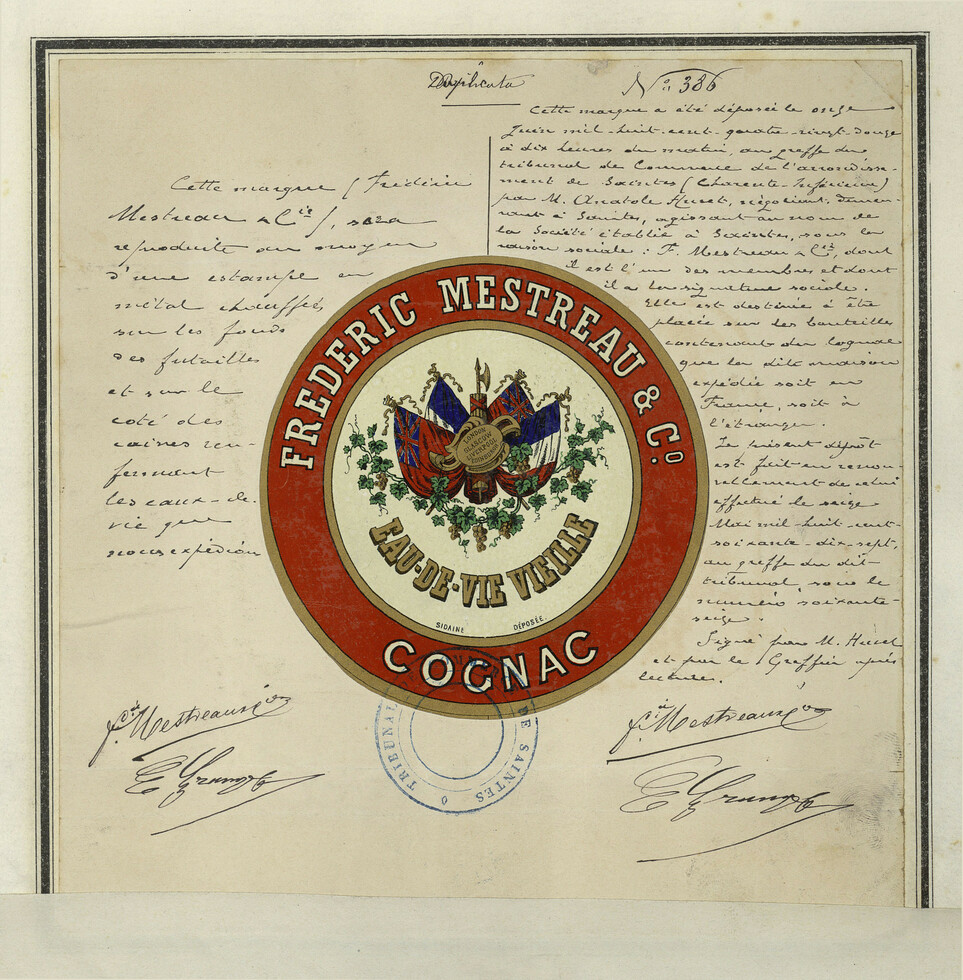 Duplicata
No 386
Cette marque a été déposée le onze
Juin mil-huit-cent-quatre-vingt-douze
à dix heures du matin, au greffe du
tribunal de Commerce de l'arrondisse-
ment de Saintes (Charente-Inférieure)
par M. Anatole Huret, négociant, demeu-
rant à Saintes, agissant au nom de
la Société établie à Saintes, sous la
raison sociale : F. Mestreau & Cie, dont
il est l'un des membres et dont
il a la signature sociale.
Elle est destinée à être
placée sur les bouteilles
contenant du cognac
que la dite maison
expédie soit en
France, soit à
l'étranger.
Le présent dépôt
est fait en renou-
vellement de celui
effectué le seize
Mai mil-huit-cent-
soixante-dix-sept,
au greffe du dit
tribunal, sous le
numéro soixante-
seize.
Signé par M. Huret
et par le Greffier après
lecture.
Cette marque (Frédéric
Mestreau & Cie), sera
reproduite au moyen
d'une estampe en
métal chauffée,
sur les fonds
des futailles
et sur le
coté des
caisses ren-
fermant
les eaux-de-
vie que
nous expédions
FREDERIC MESTREAU & Co.
LONDON
GLASGOW
LIVERPOOL
EAU-DE-VIE VIEILLE
SIDAINE DÉPOSÉE.
COGNAC
TRIBUNAL DE SAINTES
F. Mestreau & Cie
F. Mestreau & Cie